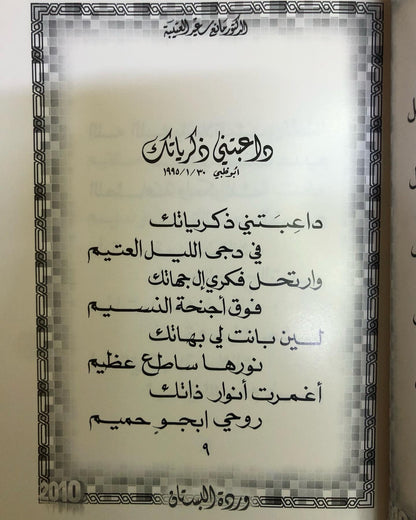 الدكتور مانع سعيد العتيبة
داعبتني ذكرياتك
ابوظبي ٣٠ / ١ / ١٩٩٥
داعِبَتني ذكرياتك
في دجى الليل العتيم
وارتحل فكري إل جهاتك
فوق أجنحة النسيم
لين بانت لي بهاتك
نورها ساطع عظيم
أغمرت أنوار ذاتك
روحي ابجوٍ حميم
٩
2010
وردة البستان